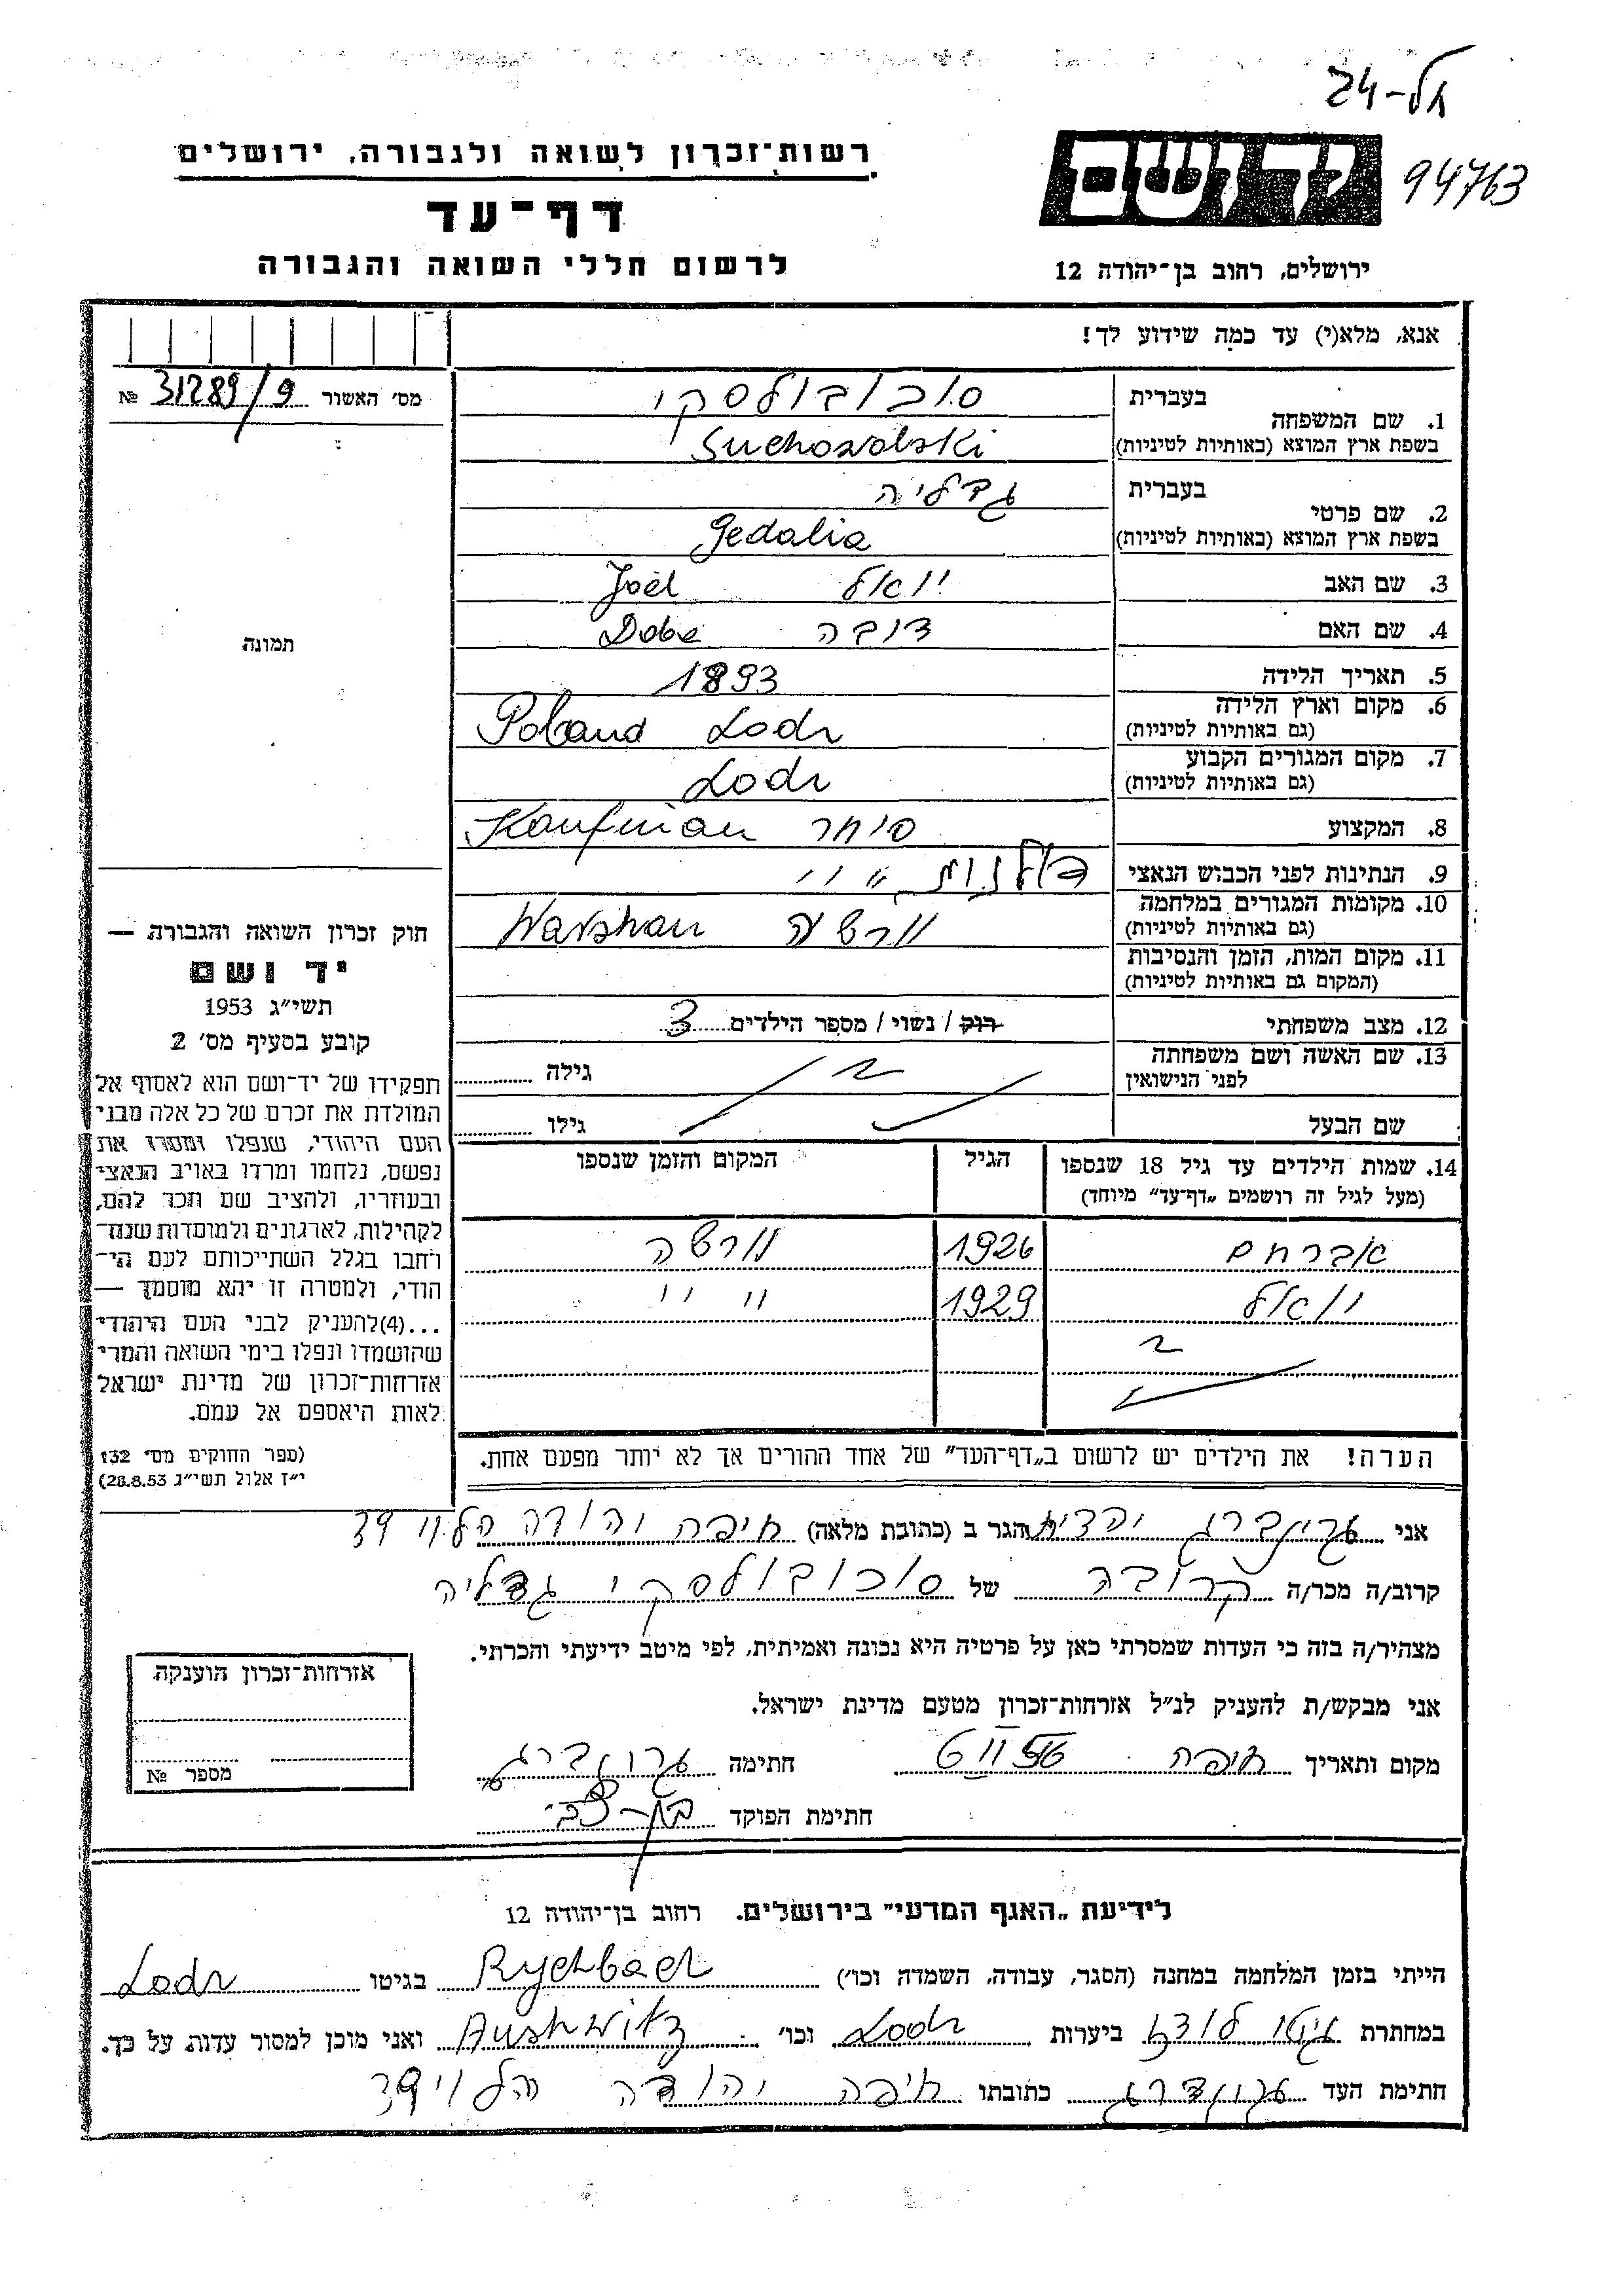 אל-24
94763
יד ושם
רשות־זכרון לשואה ולגבורה, ירושלים
דף־עד
לרשום חללי השואה והגבורה
ירושלים, רחוב בן־יהודה 12
אנא, מלא(י) עד כמה שידוע לך!
מס׳ האשור 31289/9 №
1. שם המשפחה בעברית סוכובולסקי
בשפת ארץ המוצא (באותיות לטיניות) Suchowolski
2. שם פרטי בעברית גדליה
בשפת ארץ המוצא (באותיות לטיניות) Gedalia
3. שם האב יואל Joel
4. שם האם דובה Dobe
5. תאריך הלידה 1893
6. מקום וארץ הלידה Poland Lodz
(גם באותיות לטיניות)
7. מקום המגורים הקבוע Lodz
(גם באותיות לטיניות)
8. המקצוע סוחר Kaufman
9. הנתינות לפני הכבוש הנאצי
10. מקומות המגורים במלחמה ורשה Warshau
(גם באותיות לטיניות)
11. מקום המות, הזמן והנסיבות
(המקום גם באותיות לטיניות)
12. מצב משפחתי רוק / נשוי / מספר הילדים 3
13. שם האשה ושם משפחתה גילה
לפני הנישואין
שם הבעל גילו
14. שמות הילדים עד גיל 18 שנספו הגיל המקום והזמן שנספו
(מעל לגיל זה רושמים „דף־עד״ מיוחד)
אברהם 1926 ורשה
יואל 1929 ״ ״
הערה! את הילדים יש לרשום ב„דף־העד״ של אחד ההורים אך לא יותר מפעם אחת.
תמונה
חוק זכרון השואה והגבורה —
יד ושם
תשי״ג 1953
קובע בסעיף מס׳ 2
תפקידו של יד־ושם הוא לאסוף אל
המולדת את זכרם של כל אלה מבני
העם היהודי, שנפלו ומסרו את
נפשם, נלחמו ומרדו באויב הנאצי
ובעוזריו, ולהציב שם וזכר להם,
לקהילות, לארגונים ולמוסדות שנח־
רבו בגלל השתייכותם לעם הי־
הודי, ולמטרה זו יהא מוסמך —
...(4)להעניק לבני העם היהודי
שהושמדו ונפלו בימי השואה והמרי
אזרחות־זכרון של מדינת ישראל
לאות היאספם אל עמם.
(ספר החוקים מס׳ 132
י״ז אלול תשי״ג 28.8.53)
אני גרינברג יהדית הגר ב (כתובת מלאה) חיפה יהודה הלוי 39
קרוב/ה מכר/ה קרובה של סוכובולסקי גדליה
מצהיר/ה בזה כי העדות שמסרתי כאן על פרטיה היא נכונה ואמיתית, לפי מיטב ידיעתי והכרתי.
אני מבקש/ת להעניק לנ״ל אזרחות־זכרון מטעם מדינת ישראל.
מקום ותאריך חיפה 6 II 56 חתימה גרינברג
חתימת הפוקד בן-צבי
אזרחות־זכרון הוענקה
מספר №
לידיעת „האגף המדעי״ בירושלים. רחוב בן־יהודה 12
הייתי בזמן המלחמה במחנה (הסגר, עבודה, השמדה וכו׳) Rychbach בגיטו Lodz
במחתרת גיטו לודז ביערות Lodz וכו׳ Aushwitz ואני מוכן למסור עדות על כך.
חתימת העד גרינברג כתובתו חיפה יהודה הלוי 39